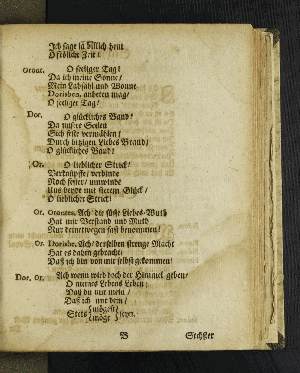 Ich sage ja
O frölich Zeit!
Oront. O seeliger Tag/
Da ich meine Sonne/
Mein Labsahl und Wonne
Dorisben, anbeten mag/
O seeliger Tag/
Dor. O glückliches Band/
Da unsere Seelen
Sich feste vermählen/
Durch hitzigen Liebes Brand/
O glückliches Band!
Or. O lieblicher Strick/
Verknüpffe/ verbinde
Noch fester/ umwinde
Uns beyde mit stetem Glück/
O lieblicher Strick!
Or. Orontes. Ach die süsse Liebes-Wuth
Hat mir Verstand und Muth
Nur deinetwegen fast benommen!
Or. Dorisbe. Ach/ derselben strenge Macht
Hat es dahin gebracht/
Daß ich bin von mir selbst gekommen!
Dor. Or. Ach wenn wird doch der Himmel geben/
O meines Lebens Leben/
Daß du mit mein/
Daß ich mit dein/
Stets seyn.
B Sechster